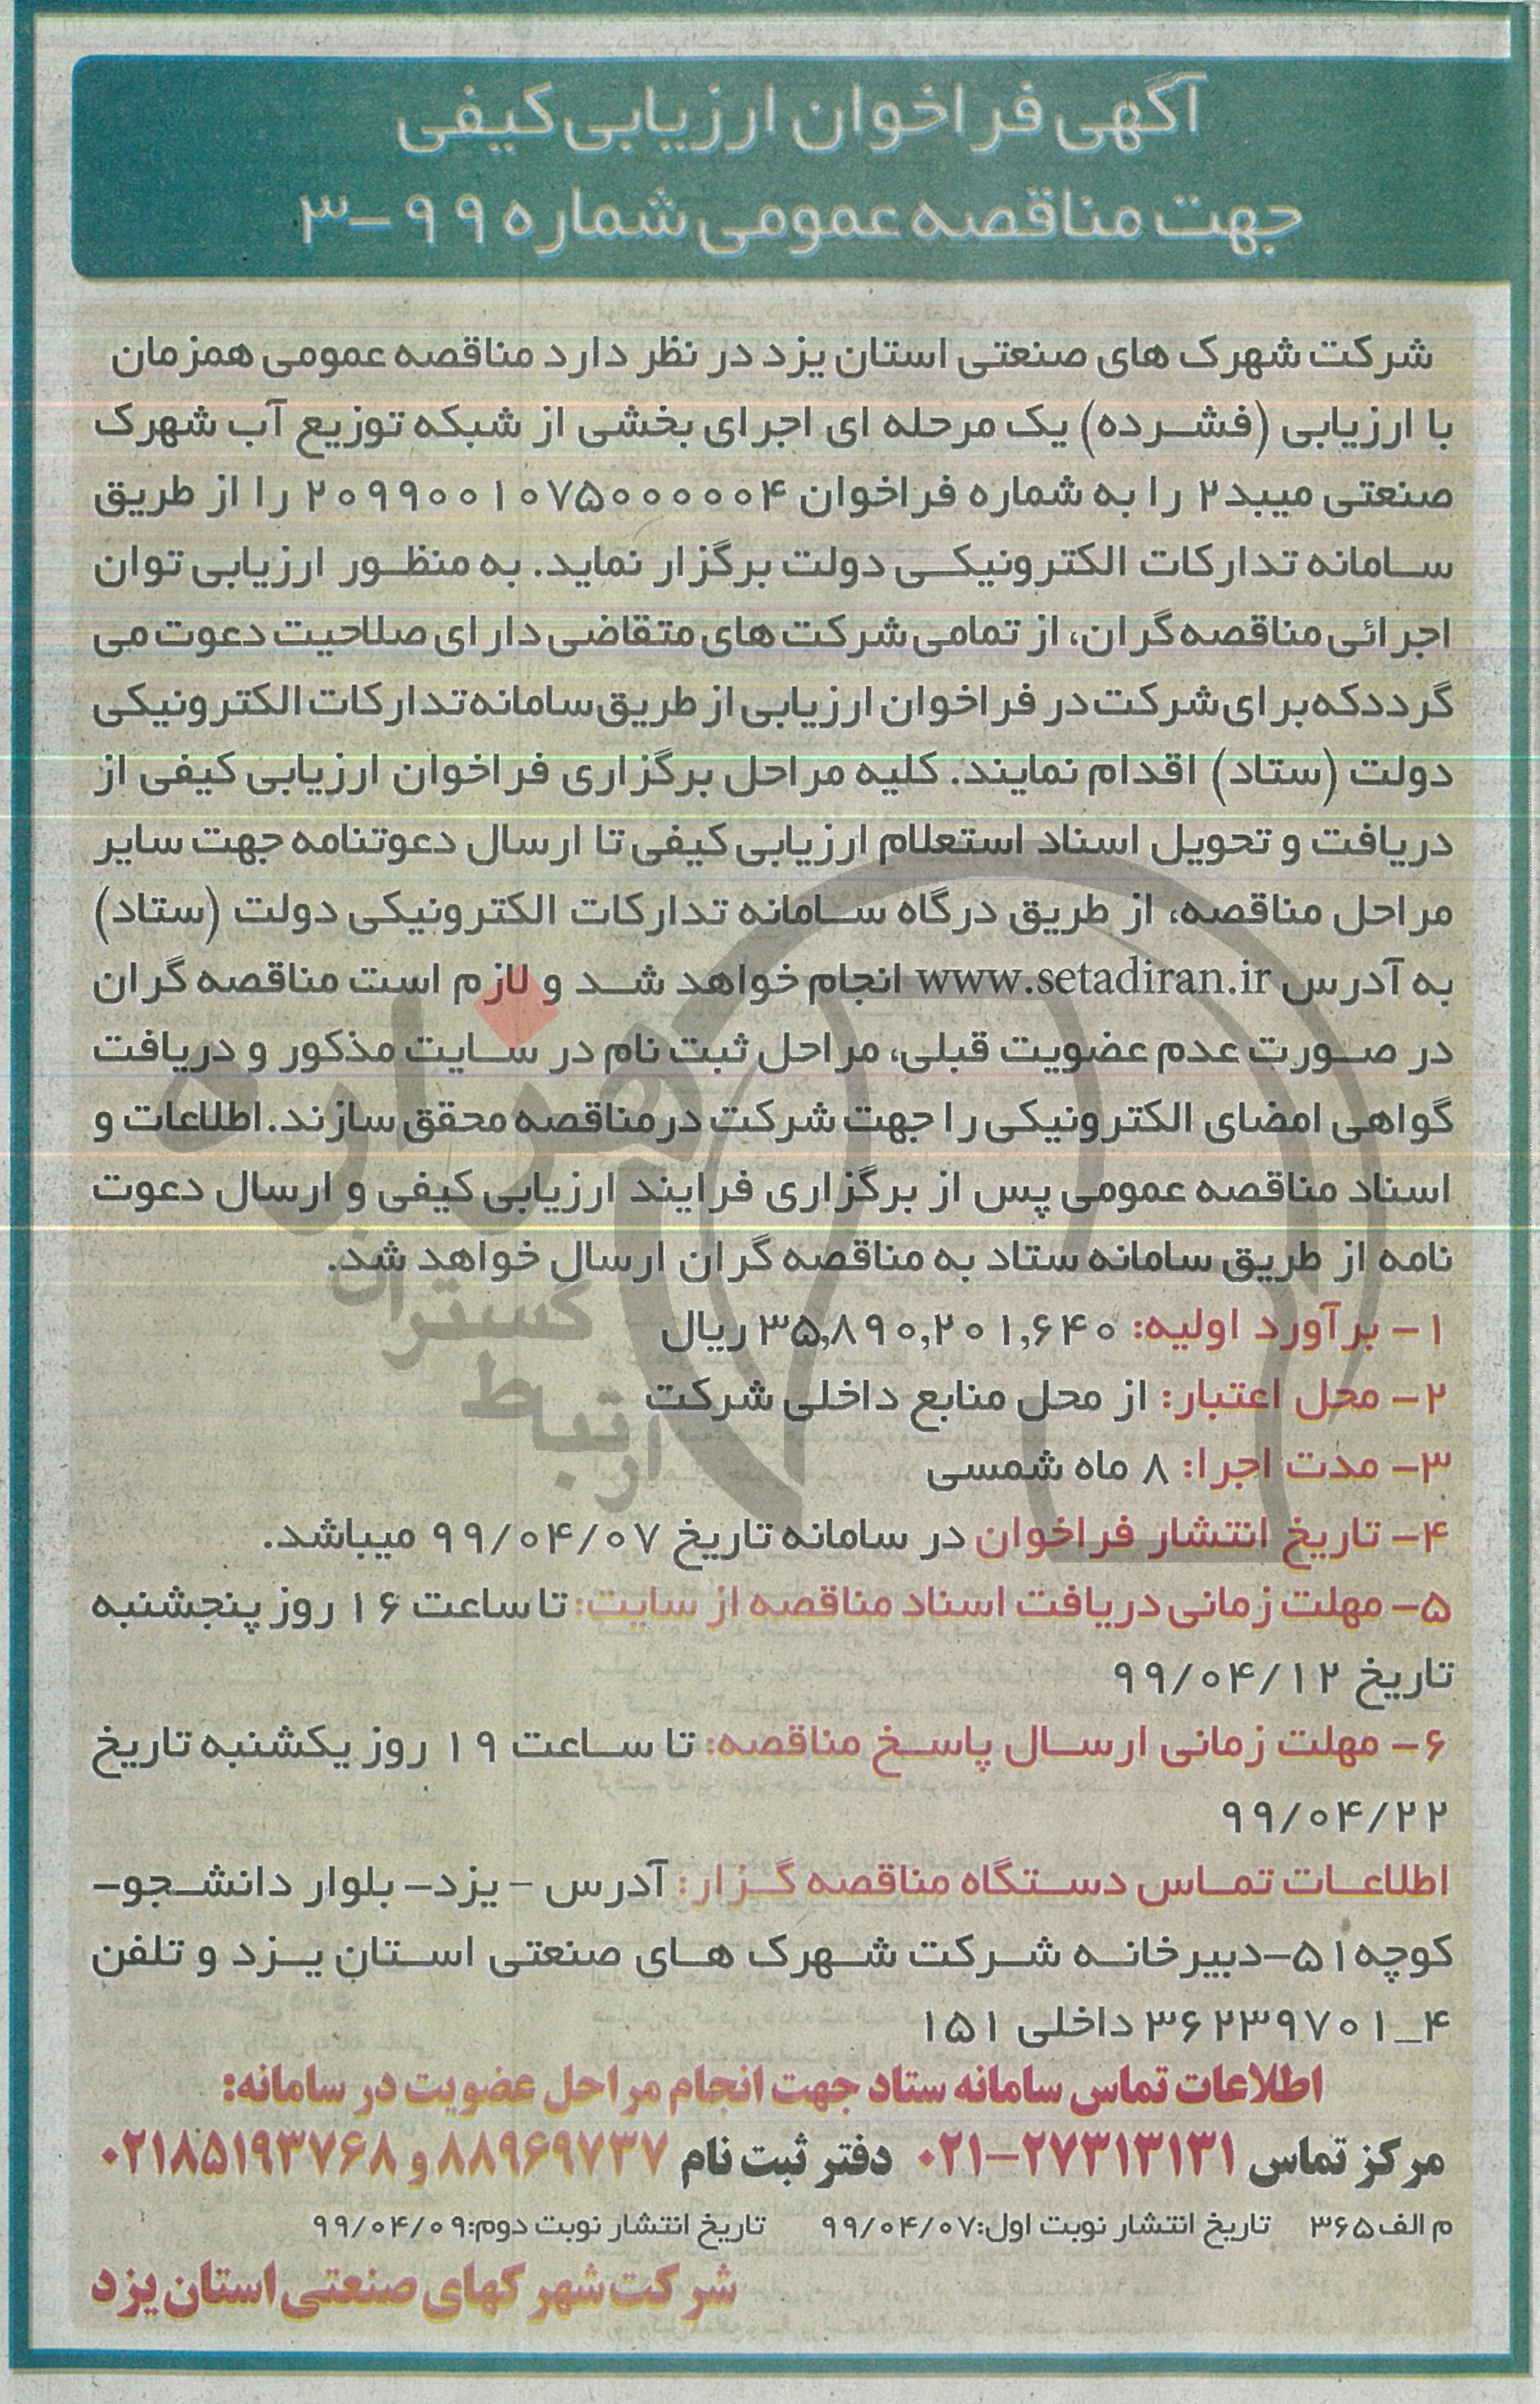 آگهی فراخوان ارزیابی کیفی
جهت مناقصه عمومی شماره ۹۹-۳
شرکت شهرک های صنعتی استان یزد در نظر دارد مناقصه عمومی همزمان
با ارزیابی (فشرده) یک مرحله ای اجرای بخشی از شبکه توزیع آب شهرک
صنعتی میبد۲ را به شماره فراخوان ۲۰۹۹۰۰۱۰۷۵۰۰۰۰۰۴ را از طریق
سامانه تدارکات الکترونیکی دولت برگزار نماید. به منظور ارزیابی توان
اجرائی مناقصه گران، از تمامی شرکت های متقاضی دارای صلاحیت دعوت می
گردد که برای شرکت در فراخوان ارزیابی از طریق سامانه تدارکات الکترونیکی
دولت (ستاد) اقدام نمایند. کلیه مراحل برگزاری فراخوان ارزیابی کیفی از
دریافت و تحویل اسناد استعلام ارزیابی کیفی تا ارسال دعوتنامه جهت سایر
مراحل مناقصه، از طریق درگاه سامانه تدارکات الکترونیکی دولت (ستاد)
به آدرس www.setadiran.ir انجام خواهد شد و لازم است مناقصه گران
در صورت عدم عضویت قبلی، مراحل ثبت نام در سایت مذکور و دریافت
گواهی امضای الکترونیکی را جهت شرکت در مناقصه محقق سازند. اطلاعات و
اسناد مناقصه عمومی پس از برگزاری فرایند ارزیابی کیفی و ارسال دعوت
نامه از طریق سامانه ستاد به مناقصه گران ارسال خواهد شد.
۱- برآورد اولیه: ۳۵,۸۹۰,۲۰۱,۶۴۰ ریال
۲- محل اعتبار: از محل منابع داخلی شرکت
۳- مدت اجرا: ۸ ماه شمسی
۴- تاریخ انتشار فراخوان در سامانه تاریخ ۹۹/۰۴/۰۷ میباشد.
۵- مهلت زمانی دریافت اسناد مناقصه از سایت: تا ساعت ۱۶ روز پنجشنبه
تاریخ ۹۹/۰۴/۱۲
۶- مهلت زمانی ارسال پاسخ مناقصه: تا ساعت ۱۹ روز یکشنبه تاریخ
۹۹/۰۴/۲۲
اطلاعات تماس دستگاه مناقصه گزار: آدرس - یزد- بلوار دانشجو-
کوچه۵۱-دبیرخانه شرکت شهرک های صنعتی استان یزد و تلفن
۴_۳۶۲۳۹۷۰۱ داخلی ۱۵۱
اطلاعات تماس سامانه ستاد جهت انجام مراحل عضویت در سامانه:
مرکز تماس ۲۷۳۱۳۱۳۱-۰۲۱ دفتر ثبت نام ۸۸۹۶۹۷۳۷ و ۰۲۱۸۵۱۹۳۷۶۸
م الف۳۶۵ تاریخ انتشار نوبت اول:۹۹/۰۴/۰۷ تاریخ انتشار نوبت دوم:۹۹/۰۴/۰۹
شرکت شهرکهای صنعتی استان یزد
هزاره
گستران
ارتباط